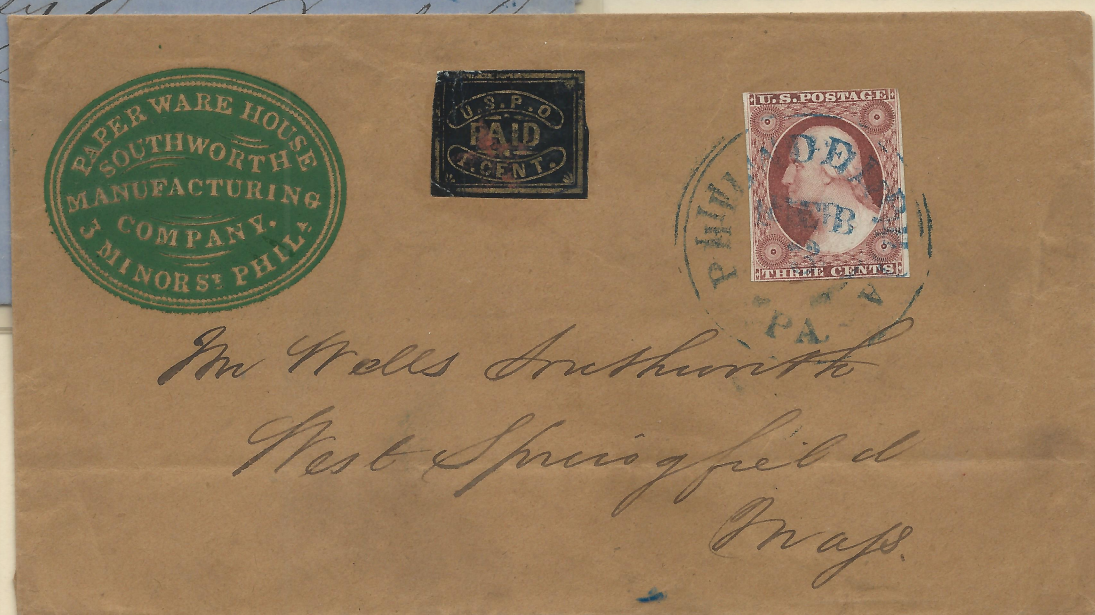 PAPER WARE HOUSE
SOUTHWORTH
MANUFACTURING
COMPANY.
3 MINOR ST PHILA
U.S.P.O
PAID
1.CENT.
U.S. POSTAGE
THREE CENTS
PHILADELPHIA
FEB
PA.
Mr Wells Southworth
West Springfield
Mass.